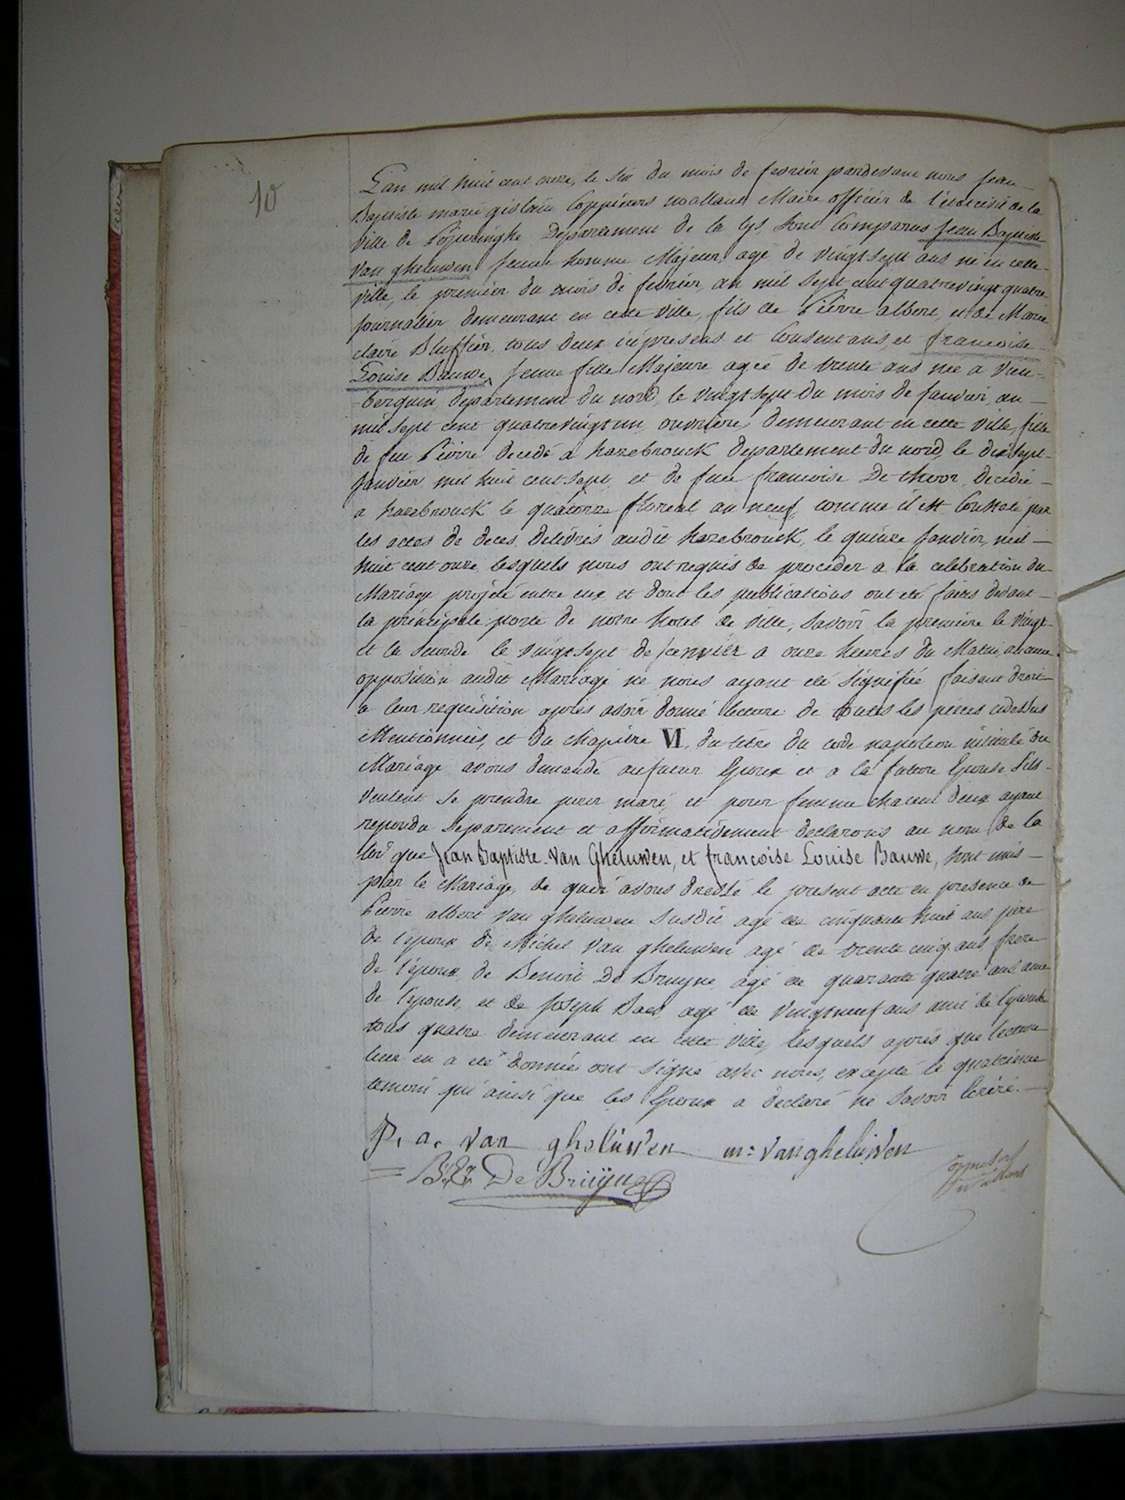 10
L'an mil huit cent onze, le six du mois de fevrier pardevant nous Jean
Baptiste marie gislain Coppieters Wallant Maire officier de l'état civil de la
ville de Poperinghe Departement de la Lys, sont Comparus Jean Baptiste
Van gheluwen jeune homme Majeur agé de vingtsept ans né en cette
ville, le premier du mois de fevrier, an mil sept cent quatrevingt quatre
journalier demeurant en cette ville, fils de Pierre albert, et de Marie
claire, tous deux ci presens et Consentans, et francoise
Louise Bauwe, jeune fille Majeure agée de trente ans née a vieu-
berquin, departement du nord, le vingtsept du mois de janvier, an
mil sept cent quatrevingt un, ouvriere, demeurant en cette ville, fille
de feu Pierre decedé a hazebrouck departement du nord, le dixsept
janvier mil huit cent sept, et de feue francoise De thoor, decedée
a hazebrouck le quatorze floreal an neuf, comme il est Constaté par
les actes de deces, delivrés audit hazebrouck, le quinze janvier, mil
huit cent onze, lesquels nous ont requis de proceder a la celebration du
Mariage projeté entre eux et dont les publications ont été faites devant
la principale porte de notre hotel de ville, savoir la premiere le vingt
et la seconde le vingtsept de janvier a onze heures du Matin, aucune
opposition audit Mariage ne nous ayant été signifiée faisant droit
a leur requisition apres avoir donné lecture de toutes les pieces cidessus
Mentionnées, et du chapitre VI, du titre du code napoleon intitulé du
Mariage avons demandé au futur Epoux et a la future Epouse s'ils
veulent se prendre pour mari et pour femme chacun d'eux ayant
repondu separement et affirmativement declarons au nom de la
loi que Jean Baptiste Van Gheluwen, et francoise Louise Bauwe, sont unis
par le Mariage, de quoi avons dressé le present acte en presence de
Pierre albert Van gheluwen susdit agé de cinquante huit ans pere
de l'epoux de Michel Van gheluwen agé de trente cinq ans frere
de l'epoux, de Benoit De Bruyne agé de quarante quatre ans ami
de l'epouse, et de Joseph Baes agé de vingtneuf ans ami de l'epouse
tous quatre demeurant en cette ville, lesquels après que lecture
leur en a été donnée ont signé avec nous, excepté le quatrieme
temoin qui ainsi que les Epoux a declaré ne savoir Ecrire.
P. a. van gheluwen m: vangheluwen
De Bruÿne